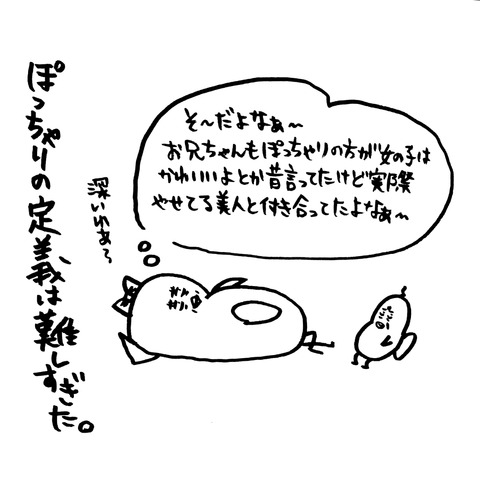 ぽっちゃりの定義は難しすぎた。
深いわぁ〜
そ〜だよなぁ〜
お兄ちゃんもぽっちゃりの方が女の子は
かわいいよとか昔言ってたけど実際
やせてる美人と付き合ってたよなぁ〜